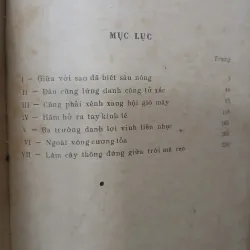 MỤC LỤC
Trang
I — Giữa vời sao đã biết sâu nông 5
II — Đầu cũng lừng danh công tố xác
III — Cũng phải xênh xàng hội gió mây
IV — Hăm hở ra tay kinh tế
V — Ba trường danh lợi vinh liền nhục
VI — Ngoài vòng cương tỏa
VII — Làm cây thông đứng giữa trời mà reo